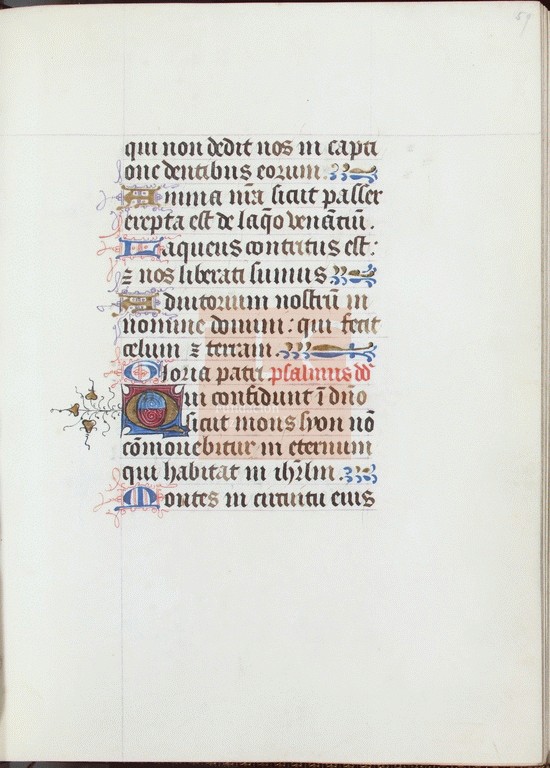 59
qui non dedit nos in capti
one dentibus eorum.
Anima nr̄a sicut passer
erepta est de laq̄o venātiū.
Laqueus contritus est:
⁊ nos liberati sumus
Adiutorium nostrū in
nomine domini: qui fecit
celum ⁊ terram.
Gloria patri. psalmus dd̄
Qui confidunt ī dn̄o
sicut mons syon nō
cōmouebitur in eternum
qui habitat in ihr̄lm.
Montes in circuitu eius